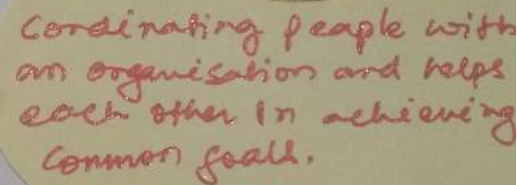 Cordinating people with
an organisation and helps
each other in achieving
common goals.